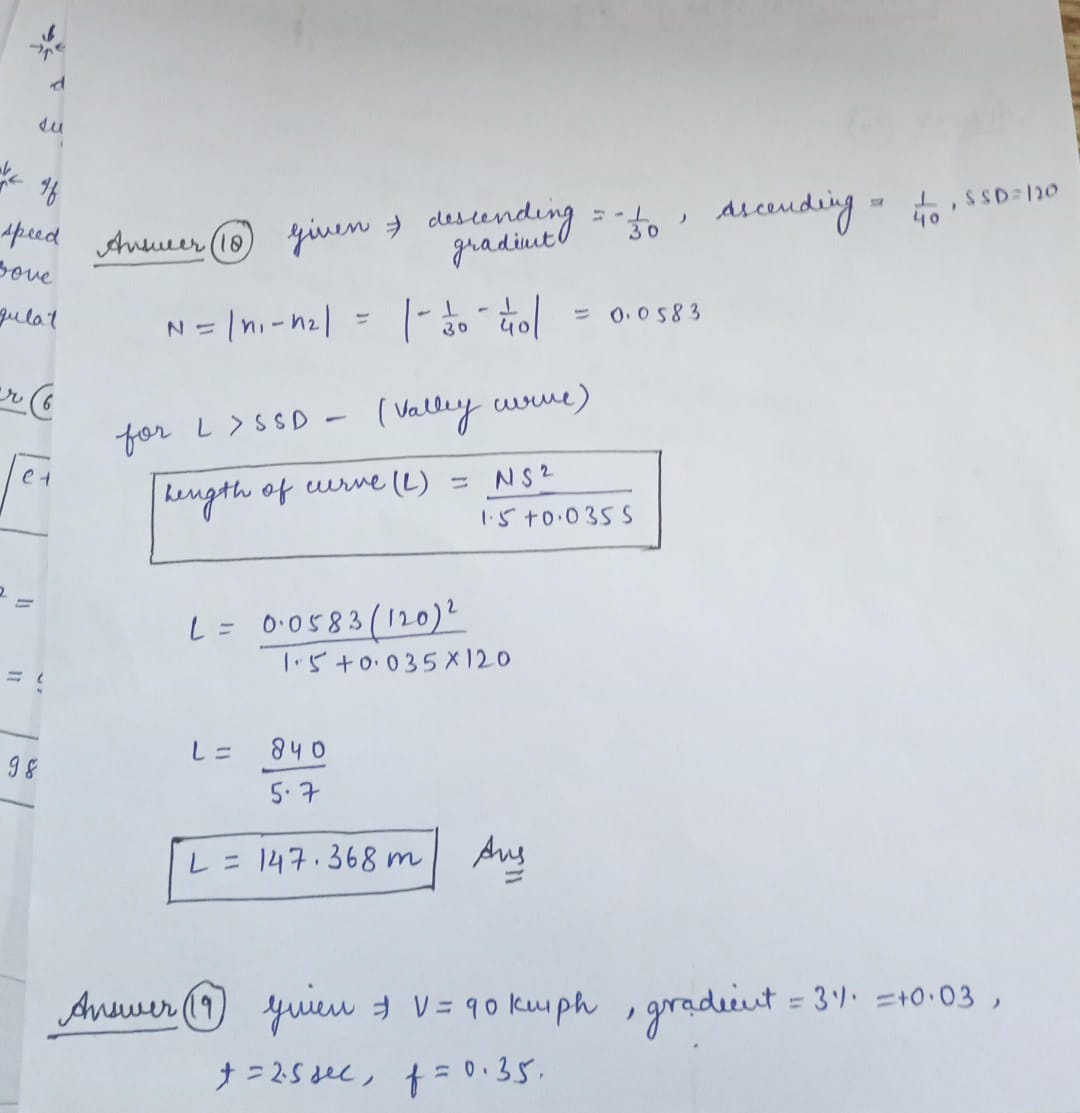 d
su
of
speed
bove
gulat
er (6
e+
2 =
=
98
Answer (18) given → descending gradient = -1/30 , Ascending = 1/40 , SSD=120
N = |n1-n2| = |-1/30 - 1/40| = 0.0583
for L > SSD - (Valley curve)
Length of curve (L) = NS²/1.5+0.035S
L = 0.0583(120)²/1.5+0.035×120
L = 840/5.7
L = 147.368 m Ans
Answer (19) given → V = 90 kmph , gradient = 3% = +0.03 ,
t = 2.5 sec, f = 0.35.